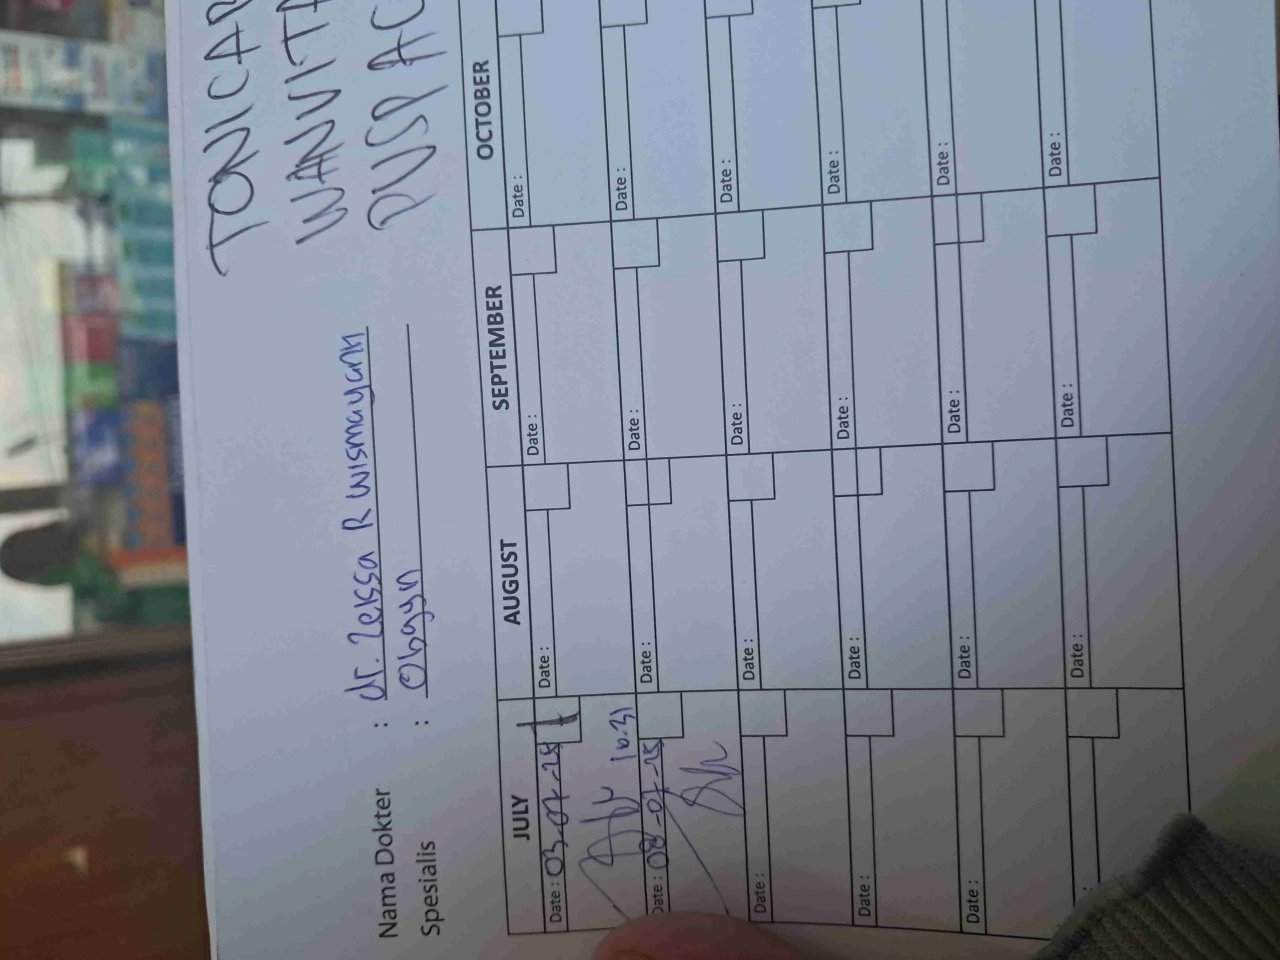 TONICAR
WANVITA
PUSP AC
Nama Dokter : dr. Zeissa R Wismayanti
Spesialis : Obgyn
JULY AUGUST SEPTEMBER OCTOBER
Date : 03-07-25 Date : Date : Date :
10.31
Date : 08-07-25 Date : Date : Date :
Date : Date : Date : Date :
Date : Date : Date : Date :
Date : Date : Date : Date :
: Date : Date : Date :